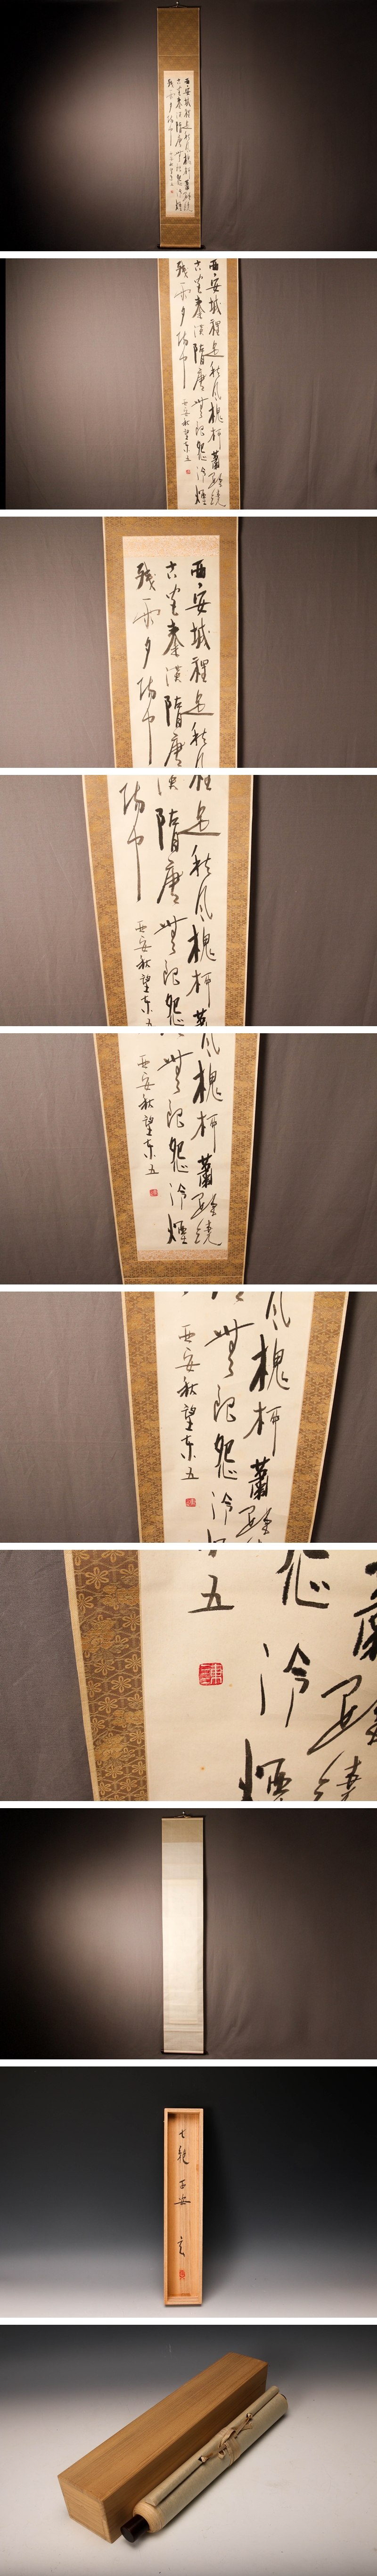 西安城裡起秋風槐柳蕭騒繞
古宮秦漢隋唐無限怨冷煙
残雨夕陽中
西安秋望東五
七絶 西安